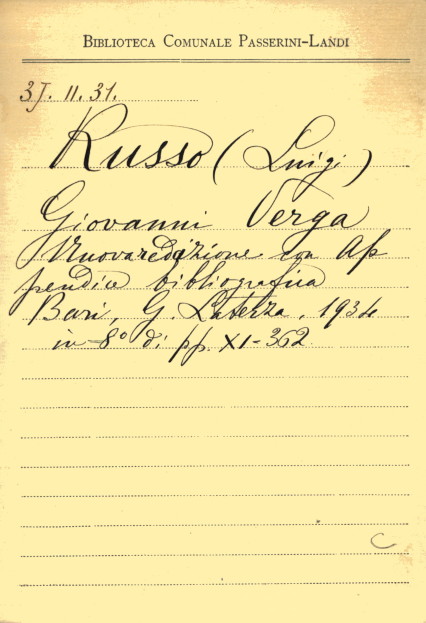 BIBLIOTECA COMUNALE PASSERINI-LANDI
3J. II. 31.
Russo (Luigi)
Giovanni Verga
Nuova redizione con Ap
pendice bibliografica
Bari, G. Laterza, 1934
in-8º di pp. XI-362
C